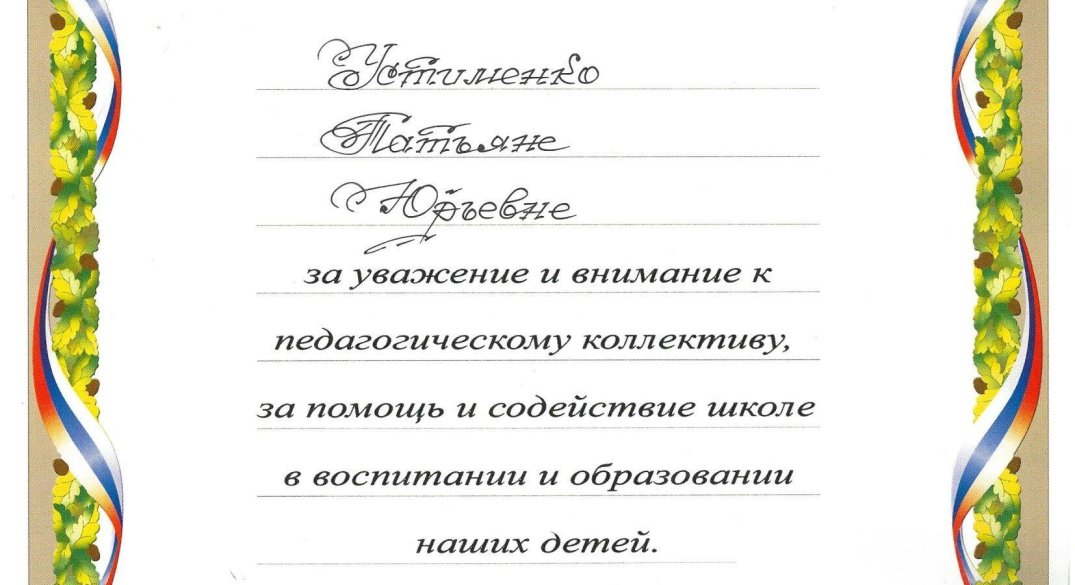 Устименко
Татьяне
Юрьевне
за уважение и внимание к
педагогическому коллективу,
за помощь и содействие школе
в воспитании и образовании
наших детей.